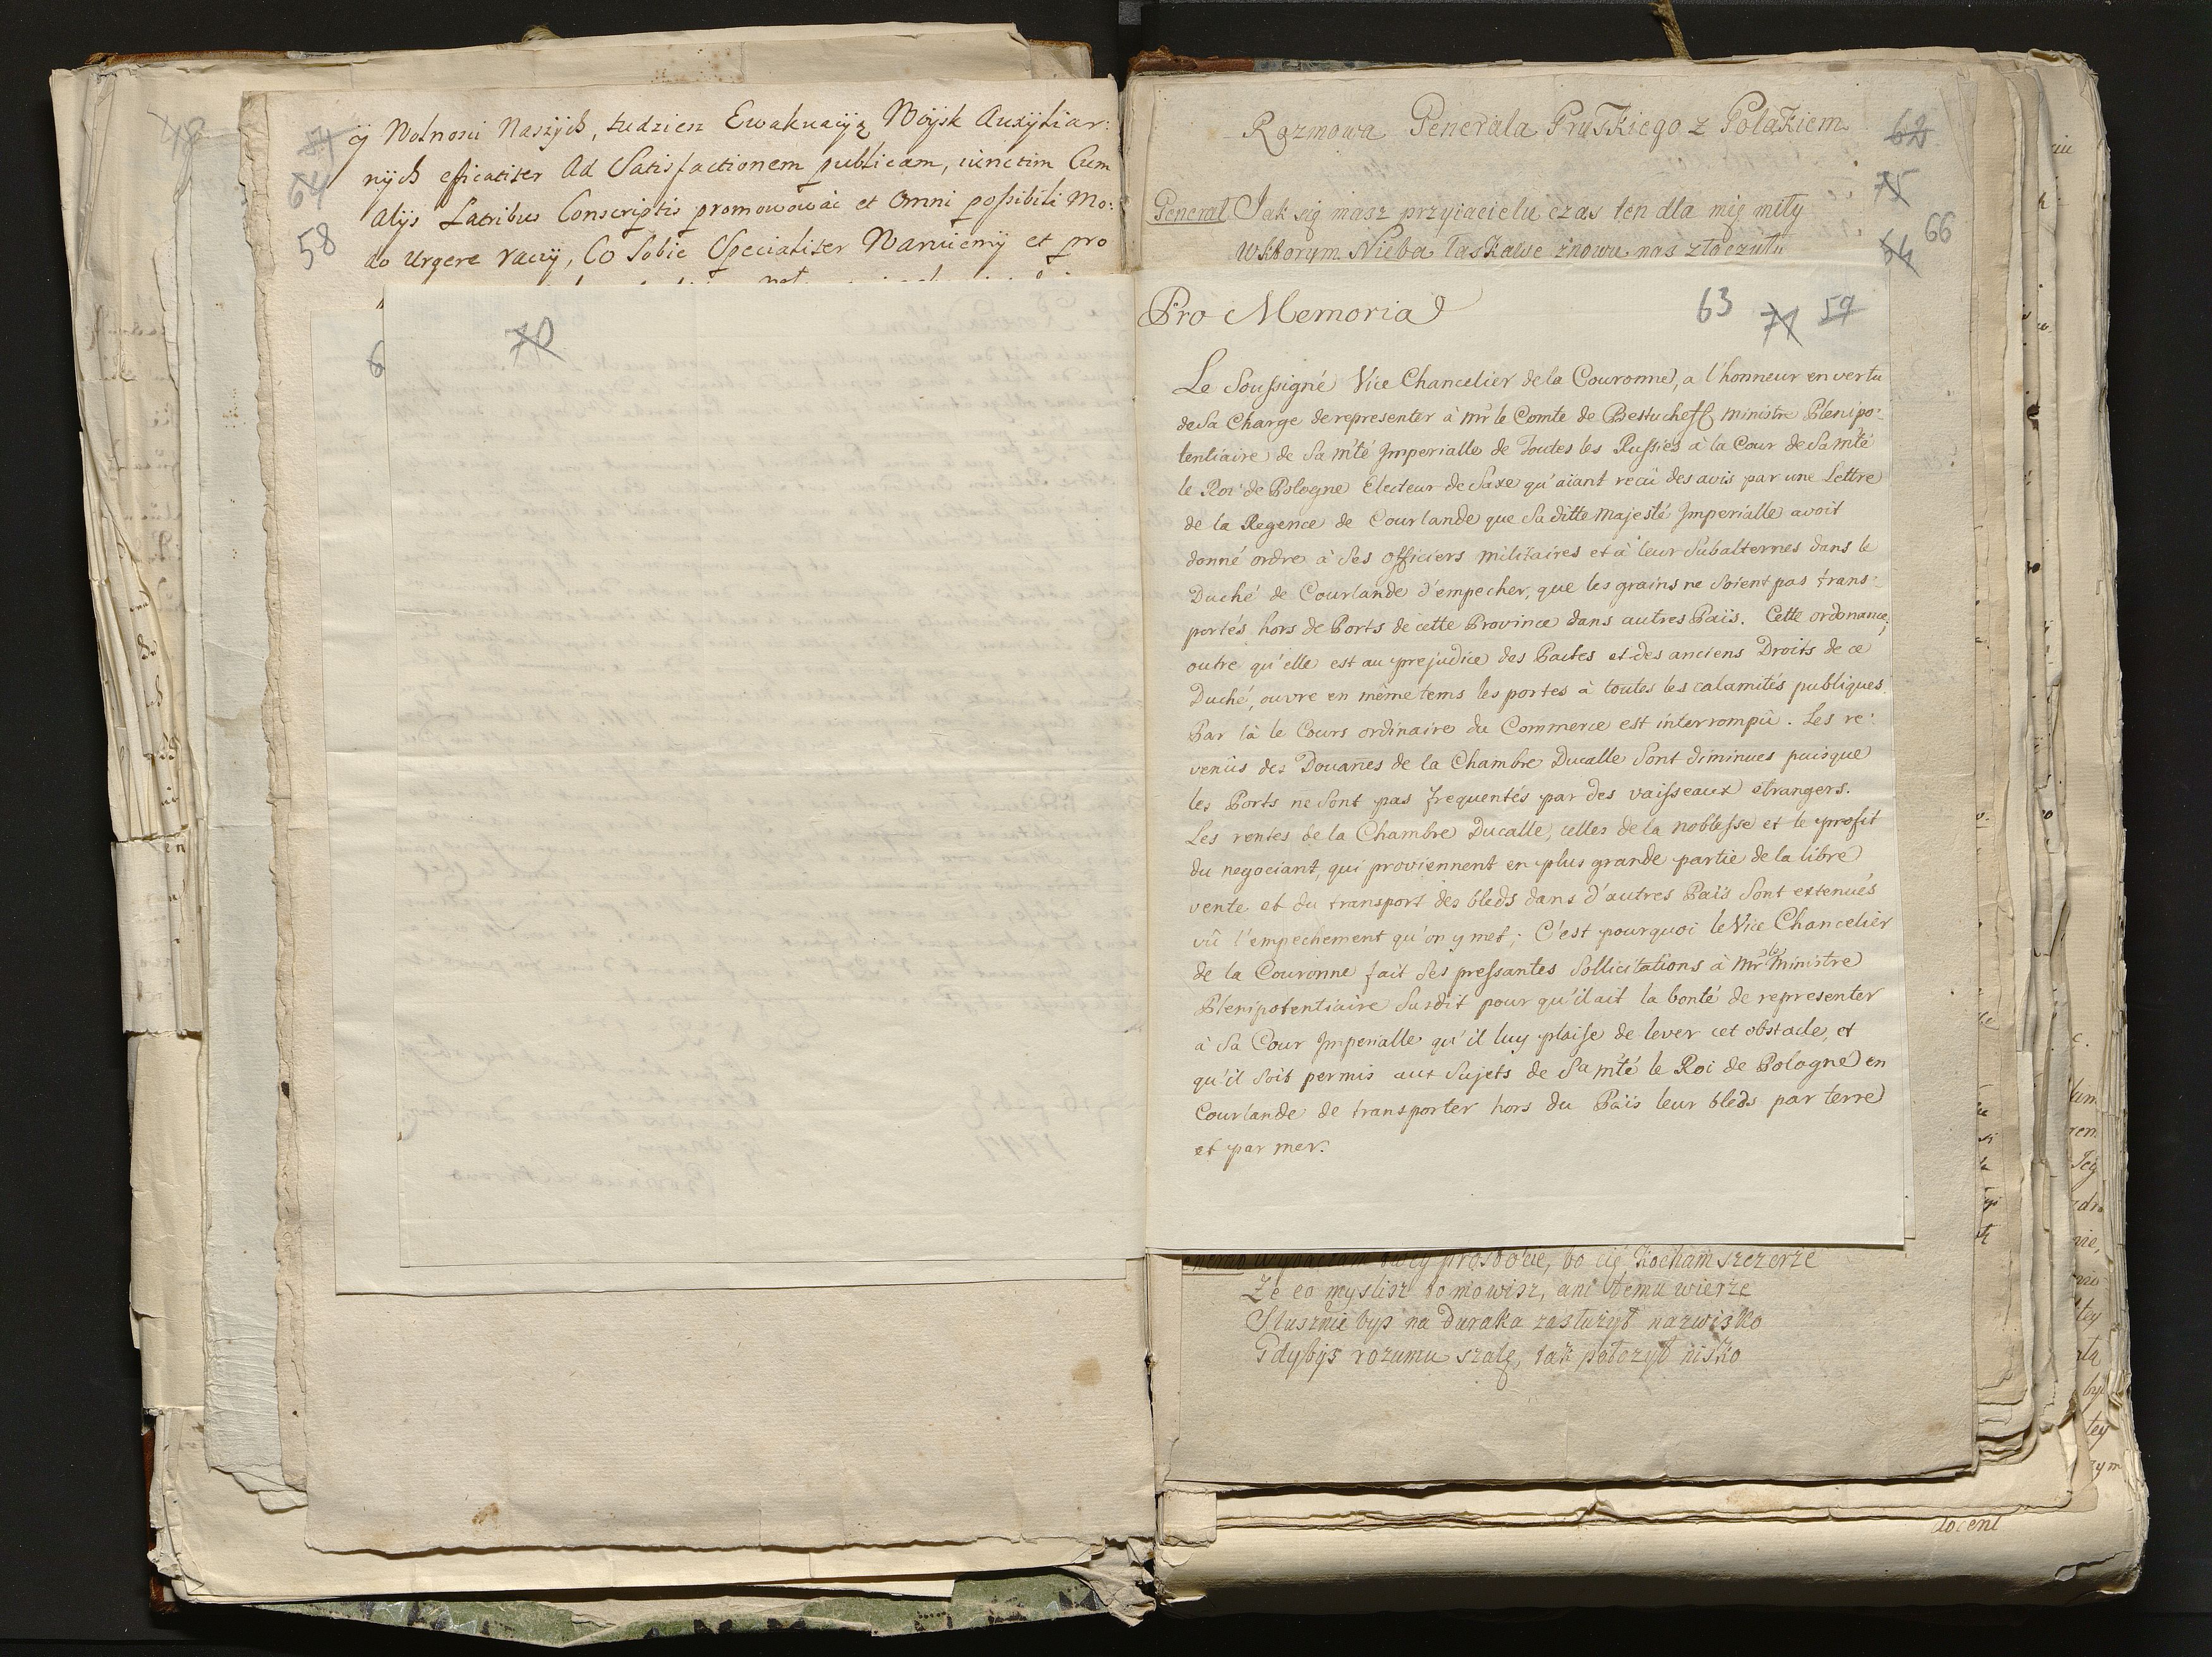 ÿ Wolnosci Naszÿch, tudziesz Ewakuacÿą Woÿsk Auxÿliar:
nÿch efficaciter ad Satisfactionem publicam, iunctim Cum
alÿs Patribus Conscriptis promowowac et omni possibili Mo:
do Urgere raczÿ, Co Sobie Specialiter Waruiemÿ et pro
48
64
58
6
70
Rozmowa Generała Pruskiego z Polakiem
62
75
66
64
Generał Jak się masz przyiacielu czas ten dla mię miły
Wktorym Nieba łaskawe znowu nas złączyły
Pro Memoria
63 71 59
Le Soussigné Vice Chancelier de la Couronne, a l'honneur en vertu
de Sa Charge de representer à Mr le Comte de Bestucheff Ministre Plenipo:
tentiaire de Sa Mté Imperialle de Toutes les Russies à la Cour de Sa Mté
le Roi de Pologne Electeur de Saxe qu'aiant reçû des avis par une Lettre
de la Regence de Courlande que Sa ditte Majesté Imperialle avoit
donné ordre à Ses officiers militaires et à leur Subalternes dans le
Duché de Courlande d'empecher, que les grains ne Soient pas trans:
portés hors de Ports de cette Province dans autres Païs. Cette ordonance,
outre qu'elle est au prejudice des Pactes et des anciens Droits de ce
Duché, ouvre en même tems les portes à toutes les calamités publiques.
Par là le Cours ordinaire du Commerce est interrompû. Les re:
venûs des Douanes de la Chambre Ducalle Sont diminues puisque
les Ports ne Sont pas frequentés par des vaisseaux etrangers.
Les rentes de la Chambre Ducalle, celles de la noblesse et le profit
du negociant, qui proviennent en plus grande partie de la libre
vente et du transport des bleds dans d'autres Païs Sont extenués
vû l'empechement qu'on y met; C'est pourquoi le Vice Chancelier
de la Couronne fait Ses pressantes Sollicitations à Mr le Ministre
Plenipotentiaire Susdit pour qu'il ait la bonté de representer
à Sa Cour Imperialle qu'il luy plaise de lever cet obstacle, et
qu'il Soit permis aux Sujets de Sa Mté le Roi de Pologne en
Courlande de transporter hors du Païs leur bleds par terre
et par mer.
prostocie, bo cię kocham szczerze
Ze co myslisz to mowisz, ani temu wierze
Słusznie bys na Duraka zasłużył nazwisko
Gdybys rozumu szalę, tak położył nisko
docent